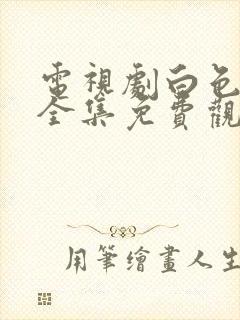 電視劇白色
全集免費觀
用筆繪畫人生